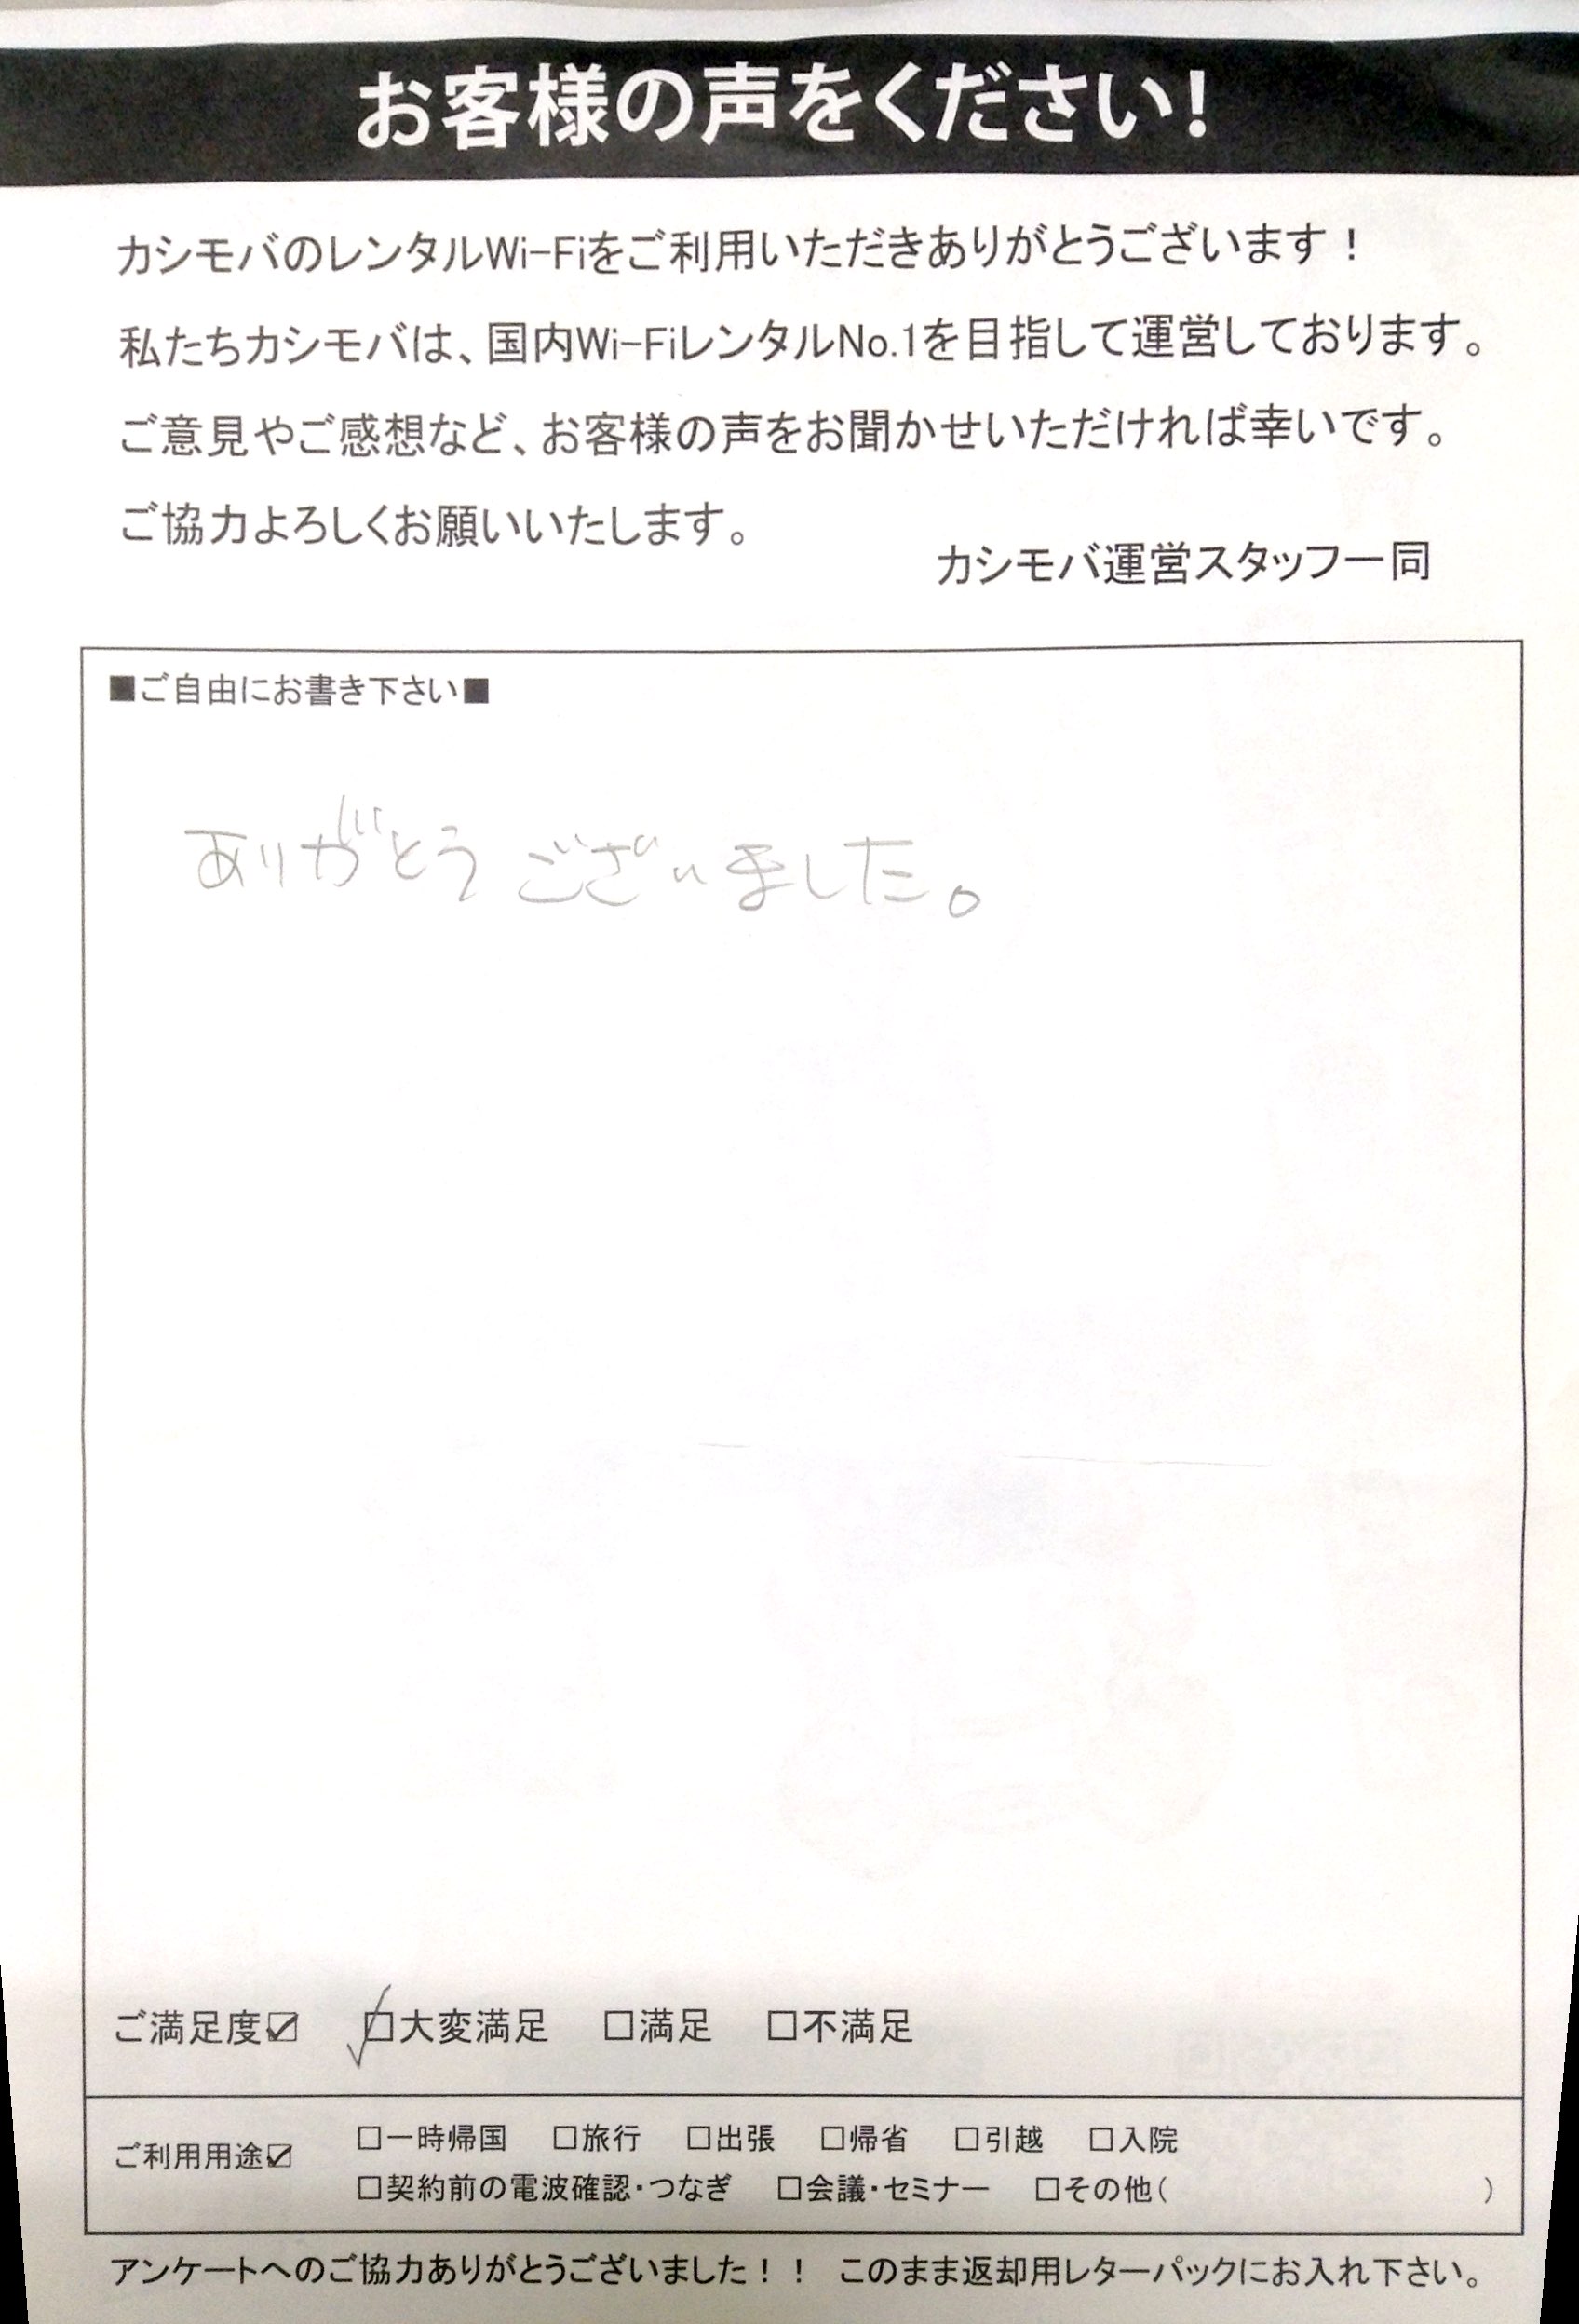 お客様の声をください!
カシモバのレンタルWi-Fiをご利用いただきありがとうございます！
私たちカシモバは、国内Wi-FiレンタルNo.1を目指して運営しております。
ご意見やご感想など、お客様の声をお聞かせいただければ幸いです。
ご協力よろしくお願いいたします。
カシモバ運営スタッフ一同
■ご自由にお書き下さい■
ありがとうございました。
ご満足度☑ ☑大変満足 □満足 □不満足
ご利用用途☑ □一時帰国 □旅行 □出張 □帰省 □引越 □入院
□契約前の電波確認・つなぎ □会議・セミナー □その他( )
アンケートへのご協力ありがとうございました！！ このまま返却用レターパックにお入れ下さい。